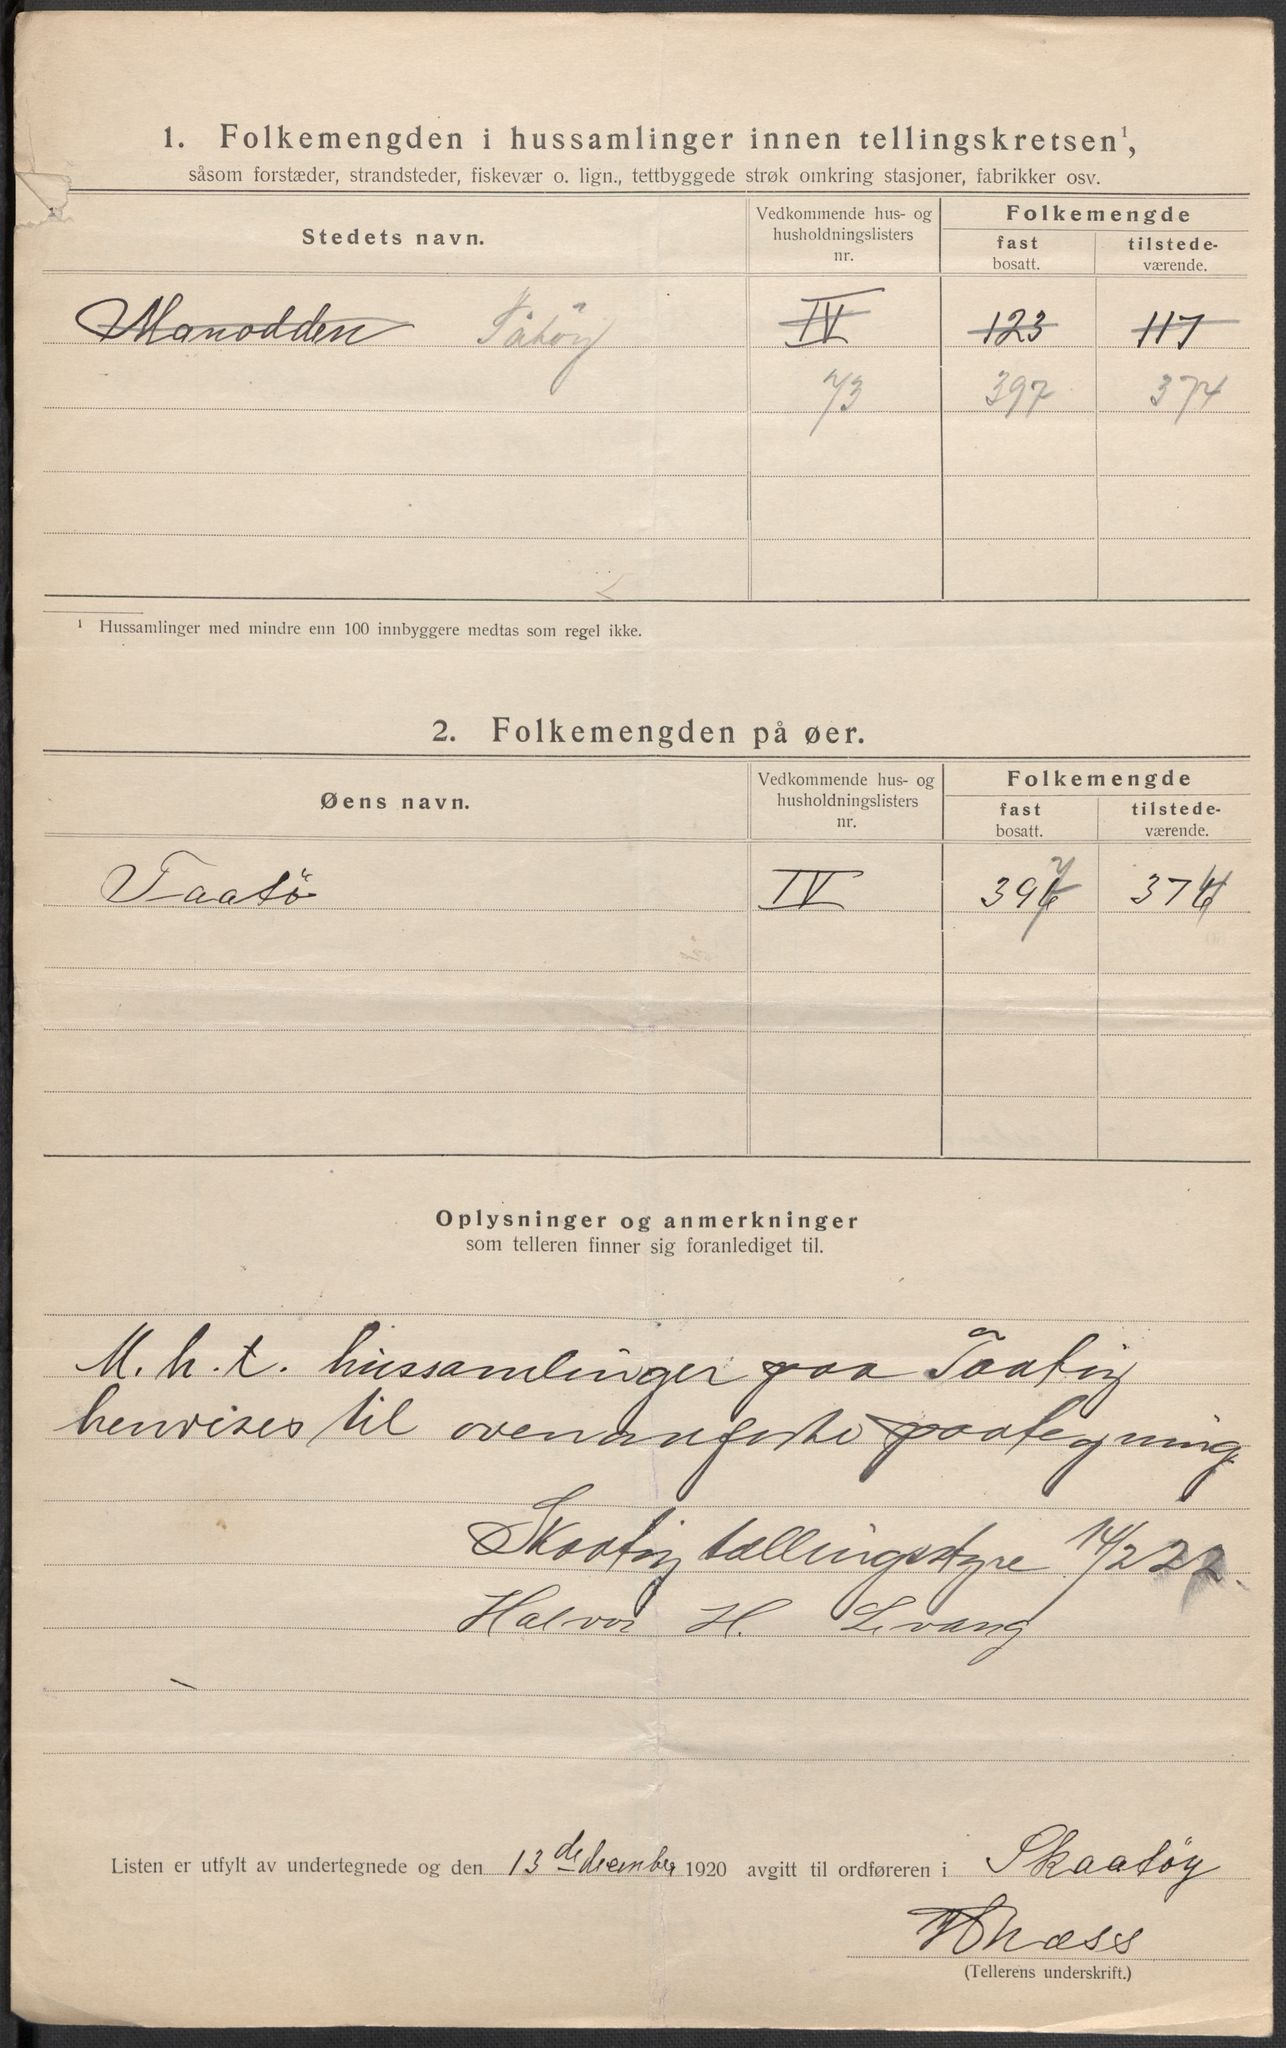 1. Folkemengden i hussamlinger innen tellingskretsen¹,
såsom forstæder, strandsteder, fiskevær o. lign., tettbyggede strøk omkring stasjoner, fabrikker osv.
Stedets navn.
Vedkommende hus- og husholdningslisters nr.
Folkemengde
fast bosatt.
tilstede-værende.
Manodden Tåtöy IV 123 117
73 397 374
¹ Hussamlinger med mindre enn 100 innbyggere medtas som regel ikke.
2. Folkemengden på øer.
Øens navn.
Vedkommende hus- og husholdningslisters nr.
Folkemengde
fast bosatt.
tilstede-værende.
Taatö IV 397 374
Oplysninger og anmerkninger
som telleren finner sig foranlediget til.
M. h. t. hussamlinger paa Taatöy
henvises til ovenanførte paategning
Skaatöy tællingsstyre 14/2 22.
Halvor H. Levang
Listen er utfylt av undertegnede og den 13de december 1920 avgitt til ordføreren i Skaatöy
(Tellerens underskrift.)